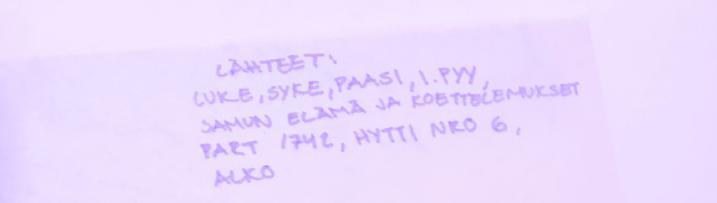 LÄHTEET:
LUKE, SYKE, PAASI, I. PYY,
SAMUN ELÄMÄ JA KOETTELEMUKSET
PART 1742, HYTTI NRO 6,
ALKO